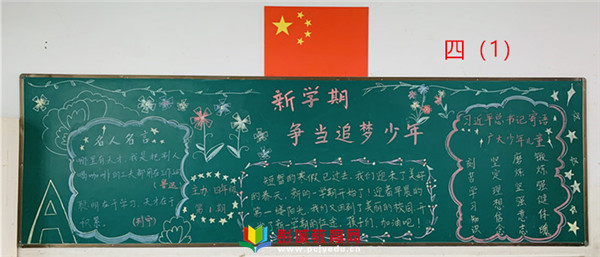 四（1）
新学期
争当追梦少年
名人名言
哪里有天才，我是把别人
喝咖啡的工夫都用在工作上
鲁迅
聪明在于学习，天才在于
积累。
主办：四年级
第1期
短暂的寒假已过去，我们迎来了美好
的春天，新的一学期开始了！迎着早晨的
第一缕阳光，我们又回到了美丽的校园，开
加油吧！
习近平总书记寄语
广大少年儿童
刻苦学习知识
坚定理想信念
磨炼坚强意志
锻炼强健体魄